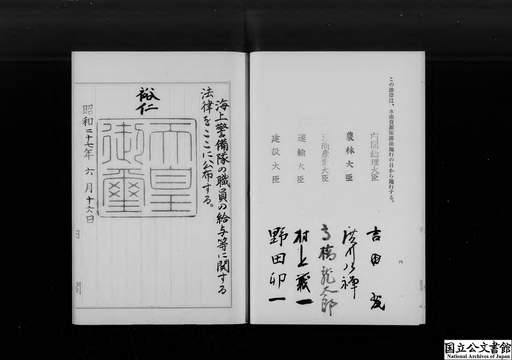 この法律は、水産資源保護法施行の日から施行する。
四
内閣総理大臣 吉田茂
農林大臣 廣川弘禅
通商産業大臣 高橋龍太郎
運輸大臣 村上義一
建設大臣 野田卯一
海上警備隊の職員の給与等に関する
法律をここに公布する。
裕仁
天皇
御璽
昭和二十七年六月十六日
国立公文書館
National Archives of Japan